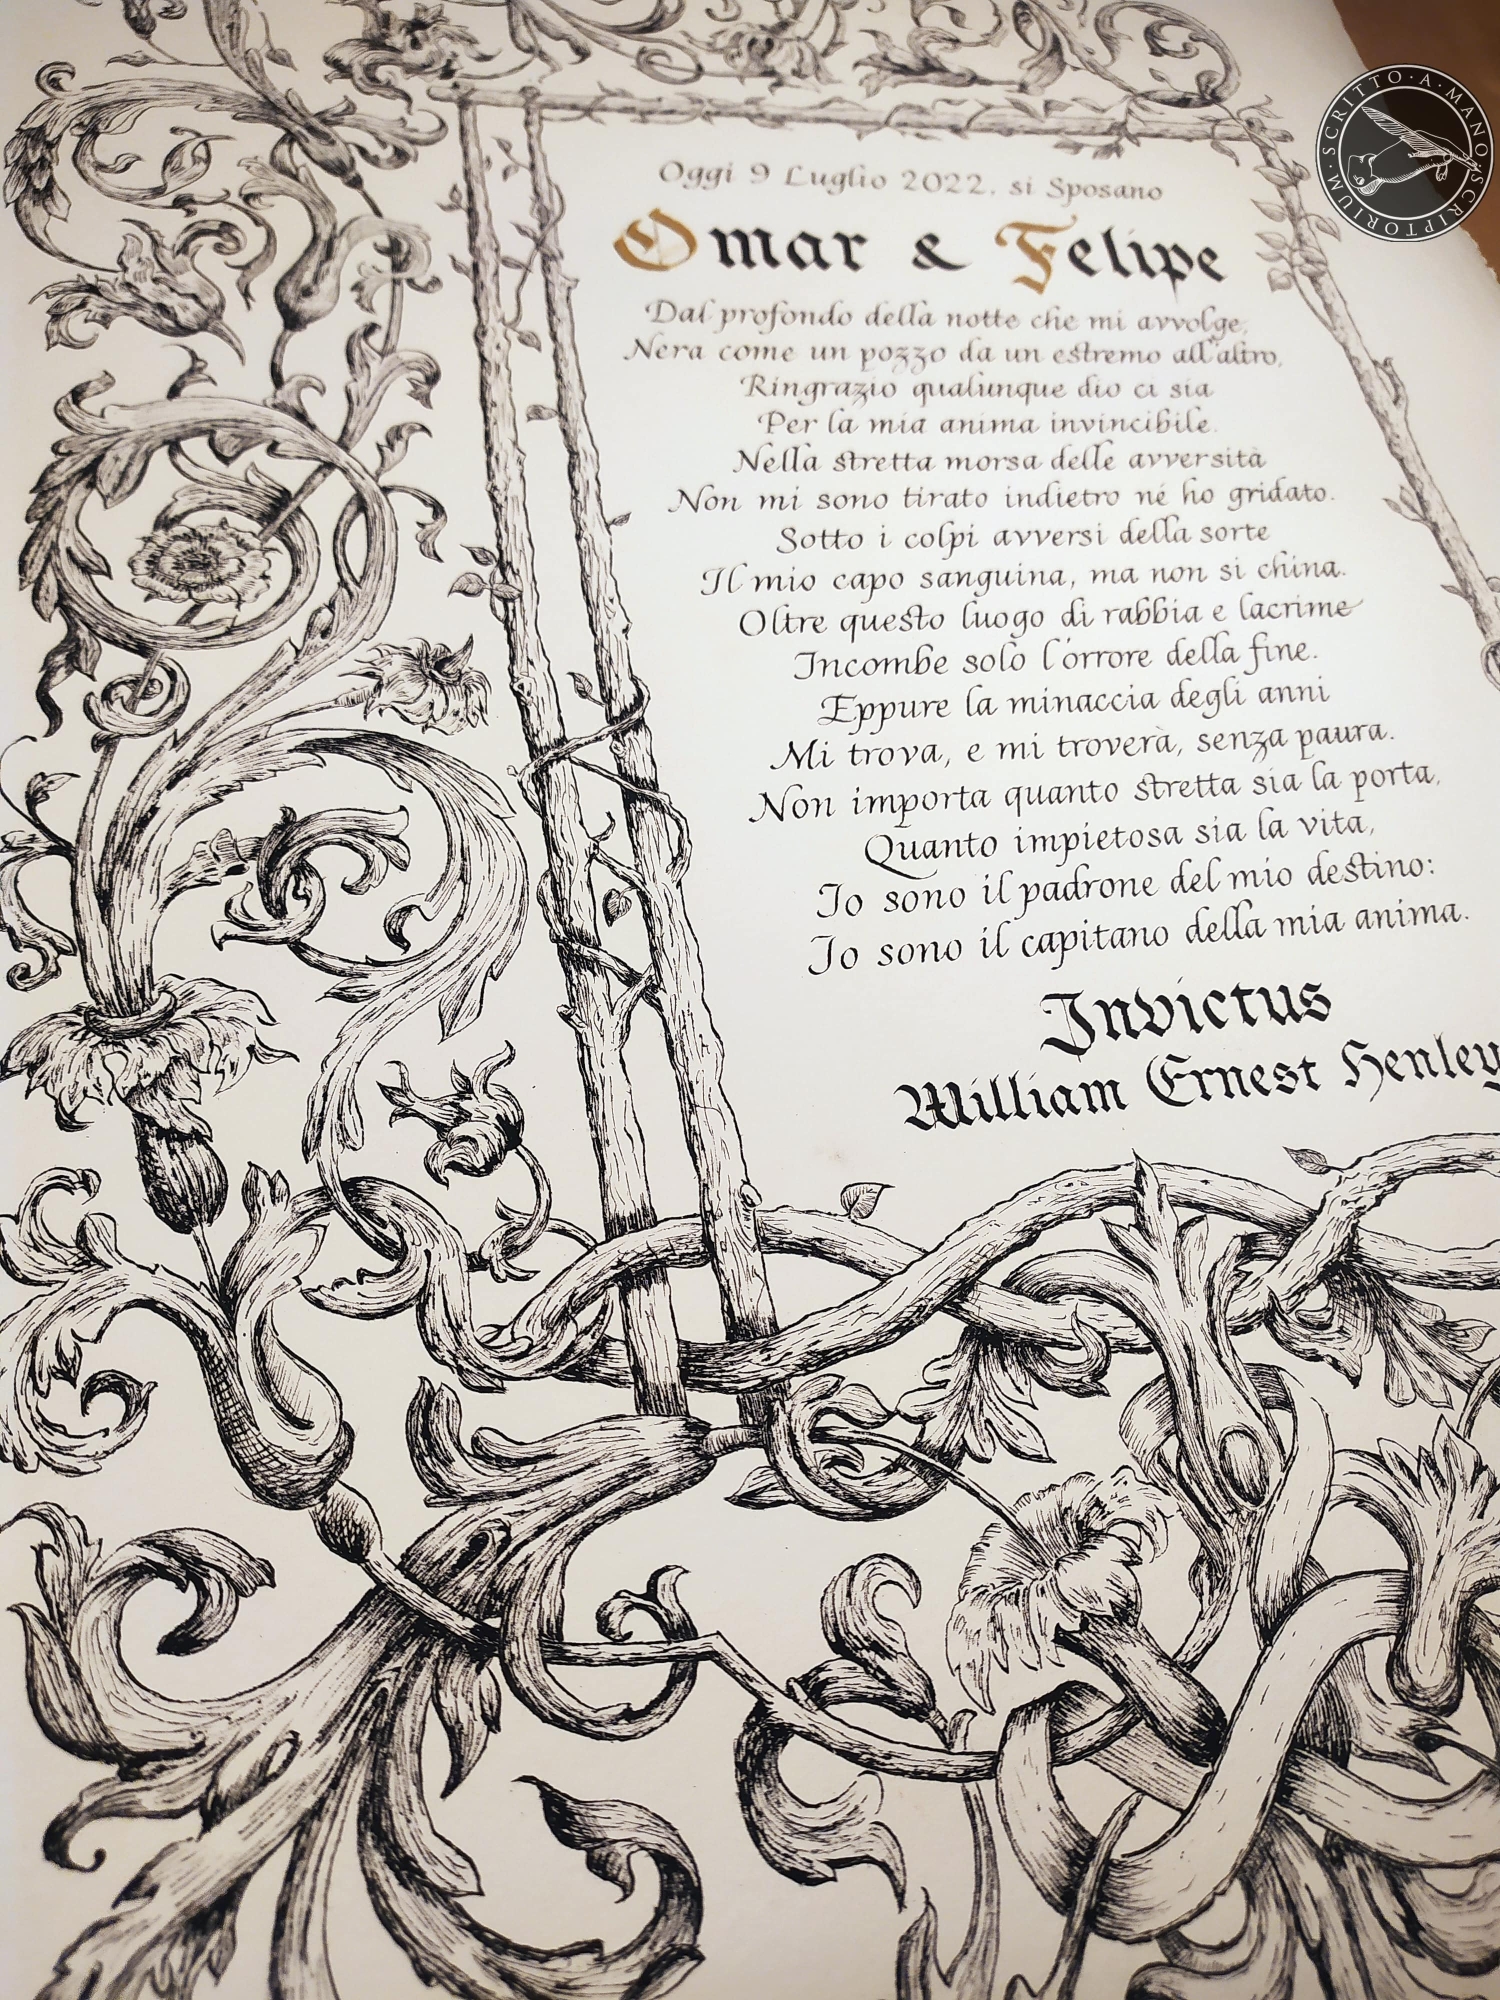 Oggi 9 Luglio 2022, si Sposano
Omar & Felipe
Dal profondo della notte che mi avvolge,
Nera come un pozzo da un estremo all'altro,
Ringrazio qualunque dio ci sia
Per la mia anima invincibile.
Nella stretta morsa delle avversità
Non mi sono tirato indietro né ho gridato.
Sotto i colpi avversi della sorte
Il mio capo sanguina, ma non si china.
Oltre questo luogo di rabbia e lacrime
Incombe solo l'orrore della fine.
Eppure la minaccia degli anni
Mi trova, e mi troverà, senza paura.
Non importa quanto stretta sia la porta,
Quanto impietosa sia la vita,
Io sono il padrone del mio destino:
Io sono il capitano della mia anima.
Invictus
William Ernest Henley
SCRITTO·A·MANO·SCRIPTORIUM·